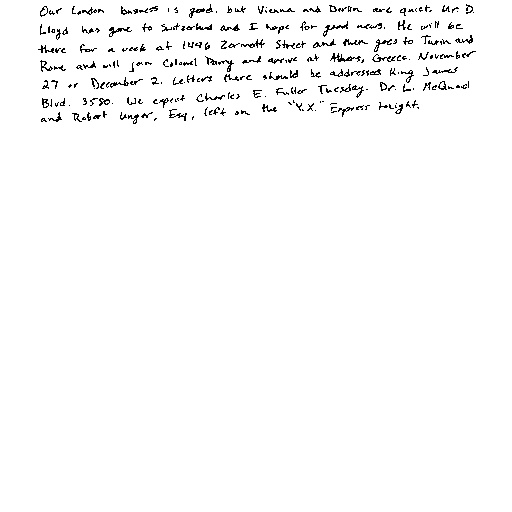 Our London business is good, but Vienna and Berlin are quiet. Mr. D.
Lloyd has gone to Switzerland and I hope for good news. He will be
there for a week at 1496 Zermott Street and then goes to Turin and
Rome and will join Colonel Parry and arrive at Athens, Greece. November
27 or December 2. Letters there should be addressed King James
Blvd. 3580. We expect Charles E. Fuller Tuesday. Dr. L. McQuaid
and Robert Unger, Esq, left on the "Y.X." Express tonight.